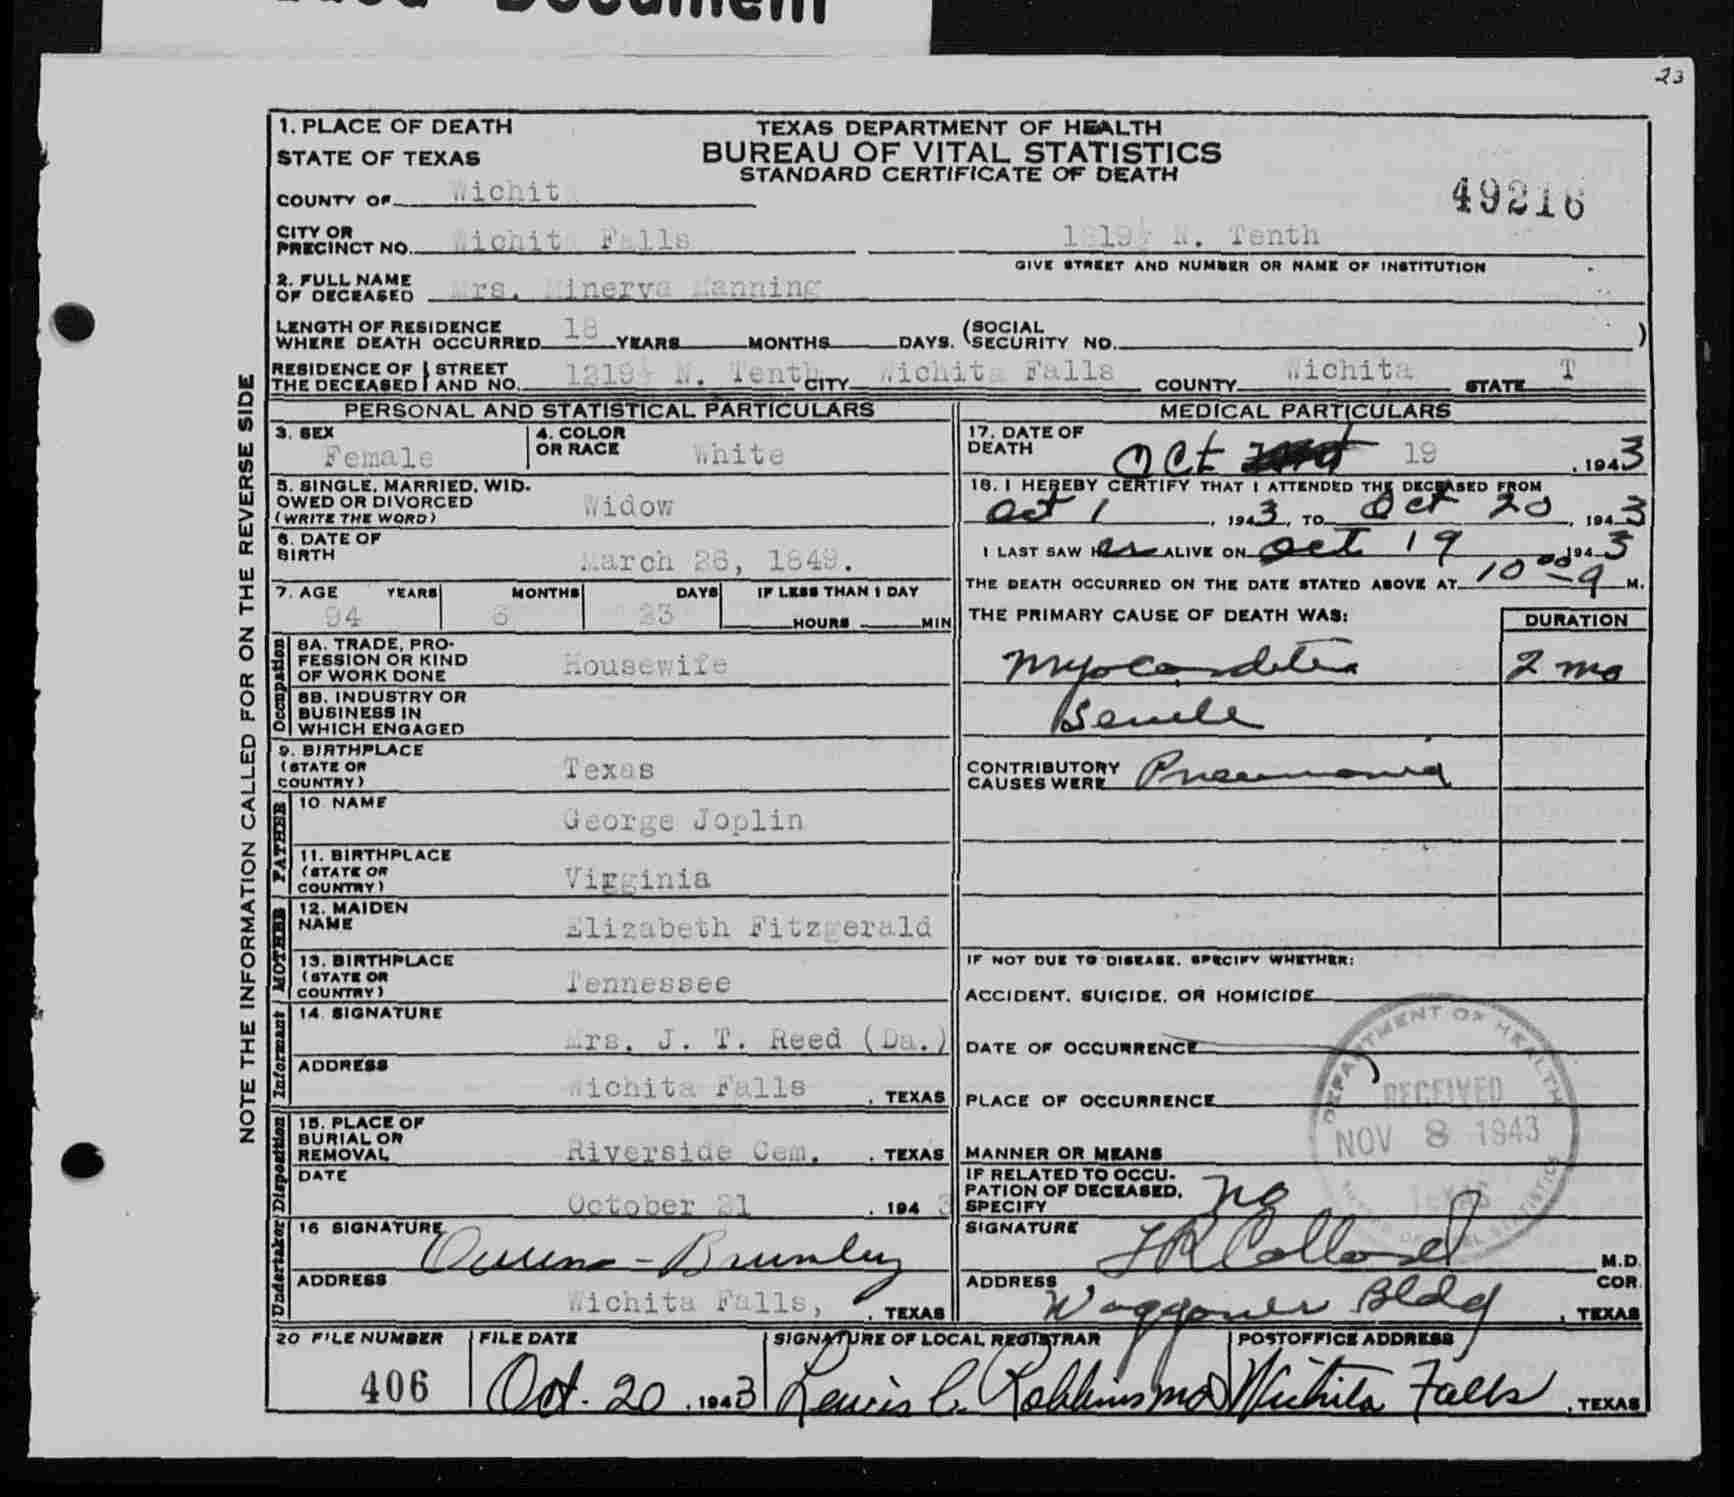 Document
23
1. PLACE OF DEATH
STATE OF TEXAS
TEXAS DEPARTMENT OF HEALTH
BUREAU OF VITAL STATISTICS
STANDARD CERTIFICATE OF DEATH
49216
COUNTY OF Wichit
CITY OR PRECINCT NO. Wichita Falls 1219½ N. Tenth
GIVE STREET AND NUMBER OR NAME OF INSTITUTION
2. FULL NAME OF DECEASED Mrs. Minerva Manning
LENGTH OF RESIDENCE WHERE DEATH OCCURRED 18 YEARS MONTHS DAYS. (SOCIAL SECURITY NO. )
RESIDENCE OF THE DECEASED STREET AND NO. 1219½ N. Tenth CITY Wichita Falls COUNTY Wichita STATE T
NOTE THE INFORMATION CALLED FOR ON THE REVERSE SIDE
PERSONAL AND STATISTICAL PARTICULARS
3. SEX Female
4. COLOR OR RACE White
5. SINGLE, MARRIED, WIDOWED OR DIVORCED (WRITE THE WORD) Widow
6. DATE OF BIRTH March 26, 1849.
7. AGE YEARS 94 MONTHS 6 DAYS 23 IF LESS THAN 1 DAY HOURS MIN
Occupation
8A. TRADE, PROFESSION OR KIND OF WORK DONE Housewife
8B. INDUSTRY OR BUSINESS IN WHICH ENGAGED
9. BIRTHPLACE (STATE OR COUNTRY) Texas
FATHER
10. NAME George Joplin
11. BIRTHPLACE (STATE OR COUNTRY) Virginia
MOTHER
12. MAIDEN NAME Elizabeth Fitzgerald
13. BIRTHPLACE (STATE OR COUNTRY) Tennessee
Informant
14. SIGNATURE Mrs. J. T. Reed (Da.)
ADDRESS Wichita Falls, TEXAS
Disposition
15. PLACE OF BURIAL OR REMOVAL Riverside Cem. , TEXAS
DATE October 21, 1943
Undertaker
16 SIGNATURE Owens - Brumley
ADDRESS Wichita Falls, , TEXAS
MEDICAL PARTICULARS
17. DATE OF DEATH Oct 19, 1943
18. I HEREBY CERTIFY THAT I ATTENDED THE DECEASED FROM
Oct 1, 1943, TO Oct 20, 1943
I LAST SAW her ALIVE ON Oct 19 1943
THE DEATH OCCURRED ON THE DATE STATED ABOVE AT 10 00 a M.
THE PRIMARY CAUSE OF DEATH WAS: DURATION
Myocarditis 2 mo
Senile
CONTRIBUTORY CAUSES WERE Pneumonia
IF NOT DUE TO DISEASE, SPECIFY WHETHER:
ACCIDENT, SUICIDE, OR HOMICIDE
DATE OF OCCURRENCE
PLACE OF OCCURRENCE
MANNER OR MEANS
IF RELATED TO OCCUPATION OF DECEASED, SPECIFY no
DEPARTMENT OF HEALTH
RECEIVED
NOV 8 1943
TEXAS
BUREAU OF VITAL STATISTICS
SIGNATURE M.D.
ADDRESS Waggoner Bldg COR. , TEXAS
20 FILE NUMBER 406
FILE DATE Oct. 20, 1943
SIGNATURE OF LOCAL REGISTRAR Lewis C. Robbins MD
POSTOFFICE ADDRESS Wichita Falls, TEXAS